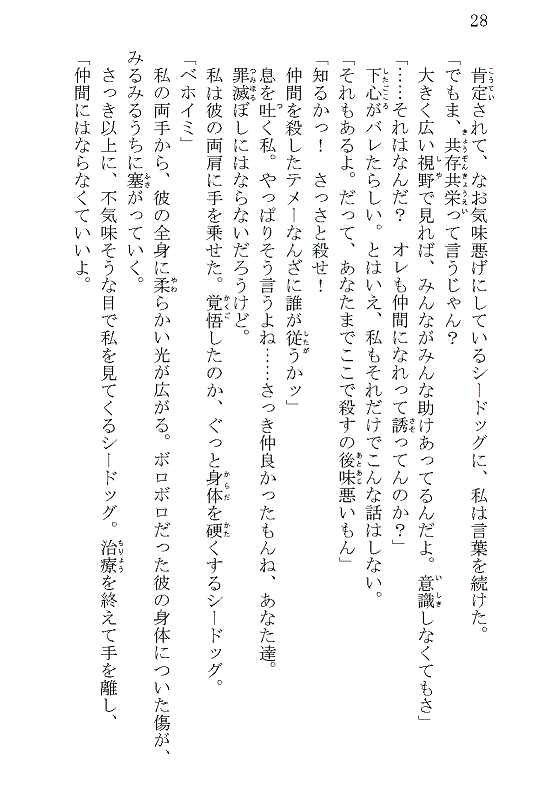 28
肯定されて、なお気味悪げにしているシードッグに、私は言葉を続けた。
「でもま、共存共栄って言うじゃん？
大きく広い視野で見れば、みんながみんな助けあってるんだよ。意識しなくてもさ」
「……それはなんだ？　オレも仲間になれって誘ってんのか？」
下心がバレたらしい。とはいえ、私もそれだけでこんな話はしない。
「それもあるよ。だって、あなたまでここで殺すの後味悪いもん」
「知るかっ！　さっさと殺せ！
仲間を殺したテメーなんざに誰が従うかッ」
息を吐く私。やっぱりそう言うよね……さっき仲良かったもんね、あなた達。
罪滅ぼしにはならないだろうけど。
私は彼の両肩に手を乗せた。覚悟したのか、ぐっと身体を硬くするシードッグ。
「ベホイミ」
私の両手から、彼の全身に柔らかい光が広がる。ボロボロだった彼の身体についた傷が、
みるみるうちに塞がっていく。
さっき以上に、不気味そうな目で私を見てくるシードッグ。治療を終えて手を離し、
「仲間にはならなくていいよ。